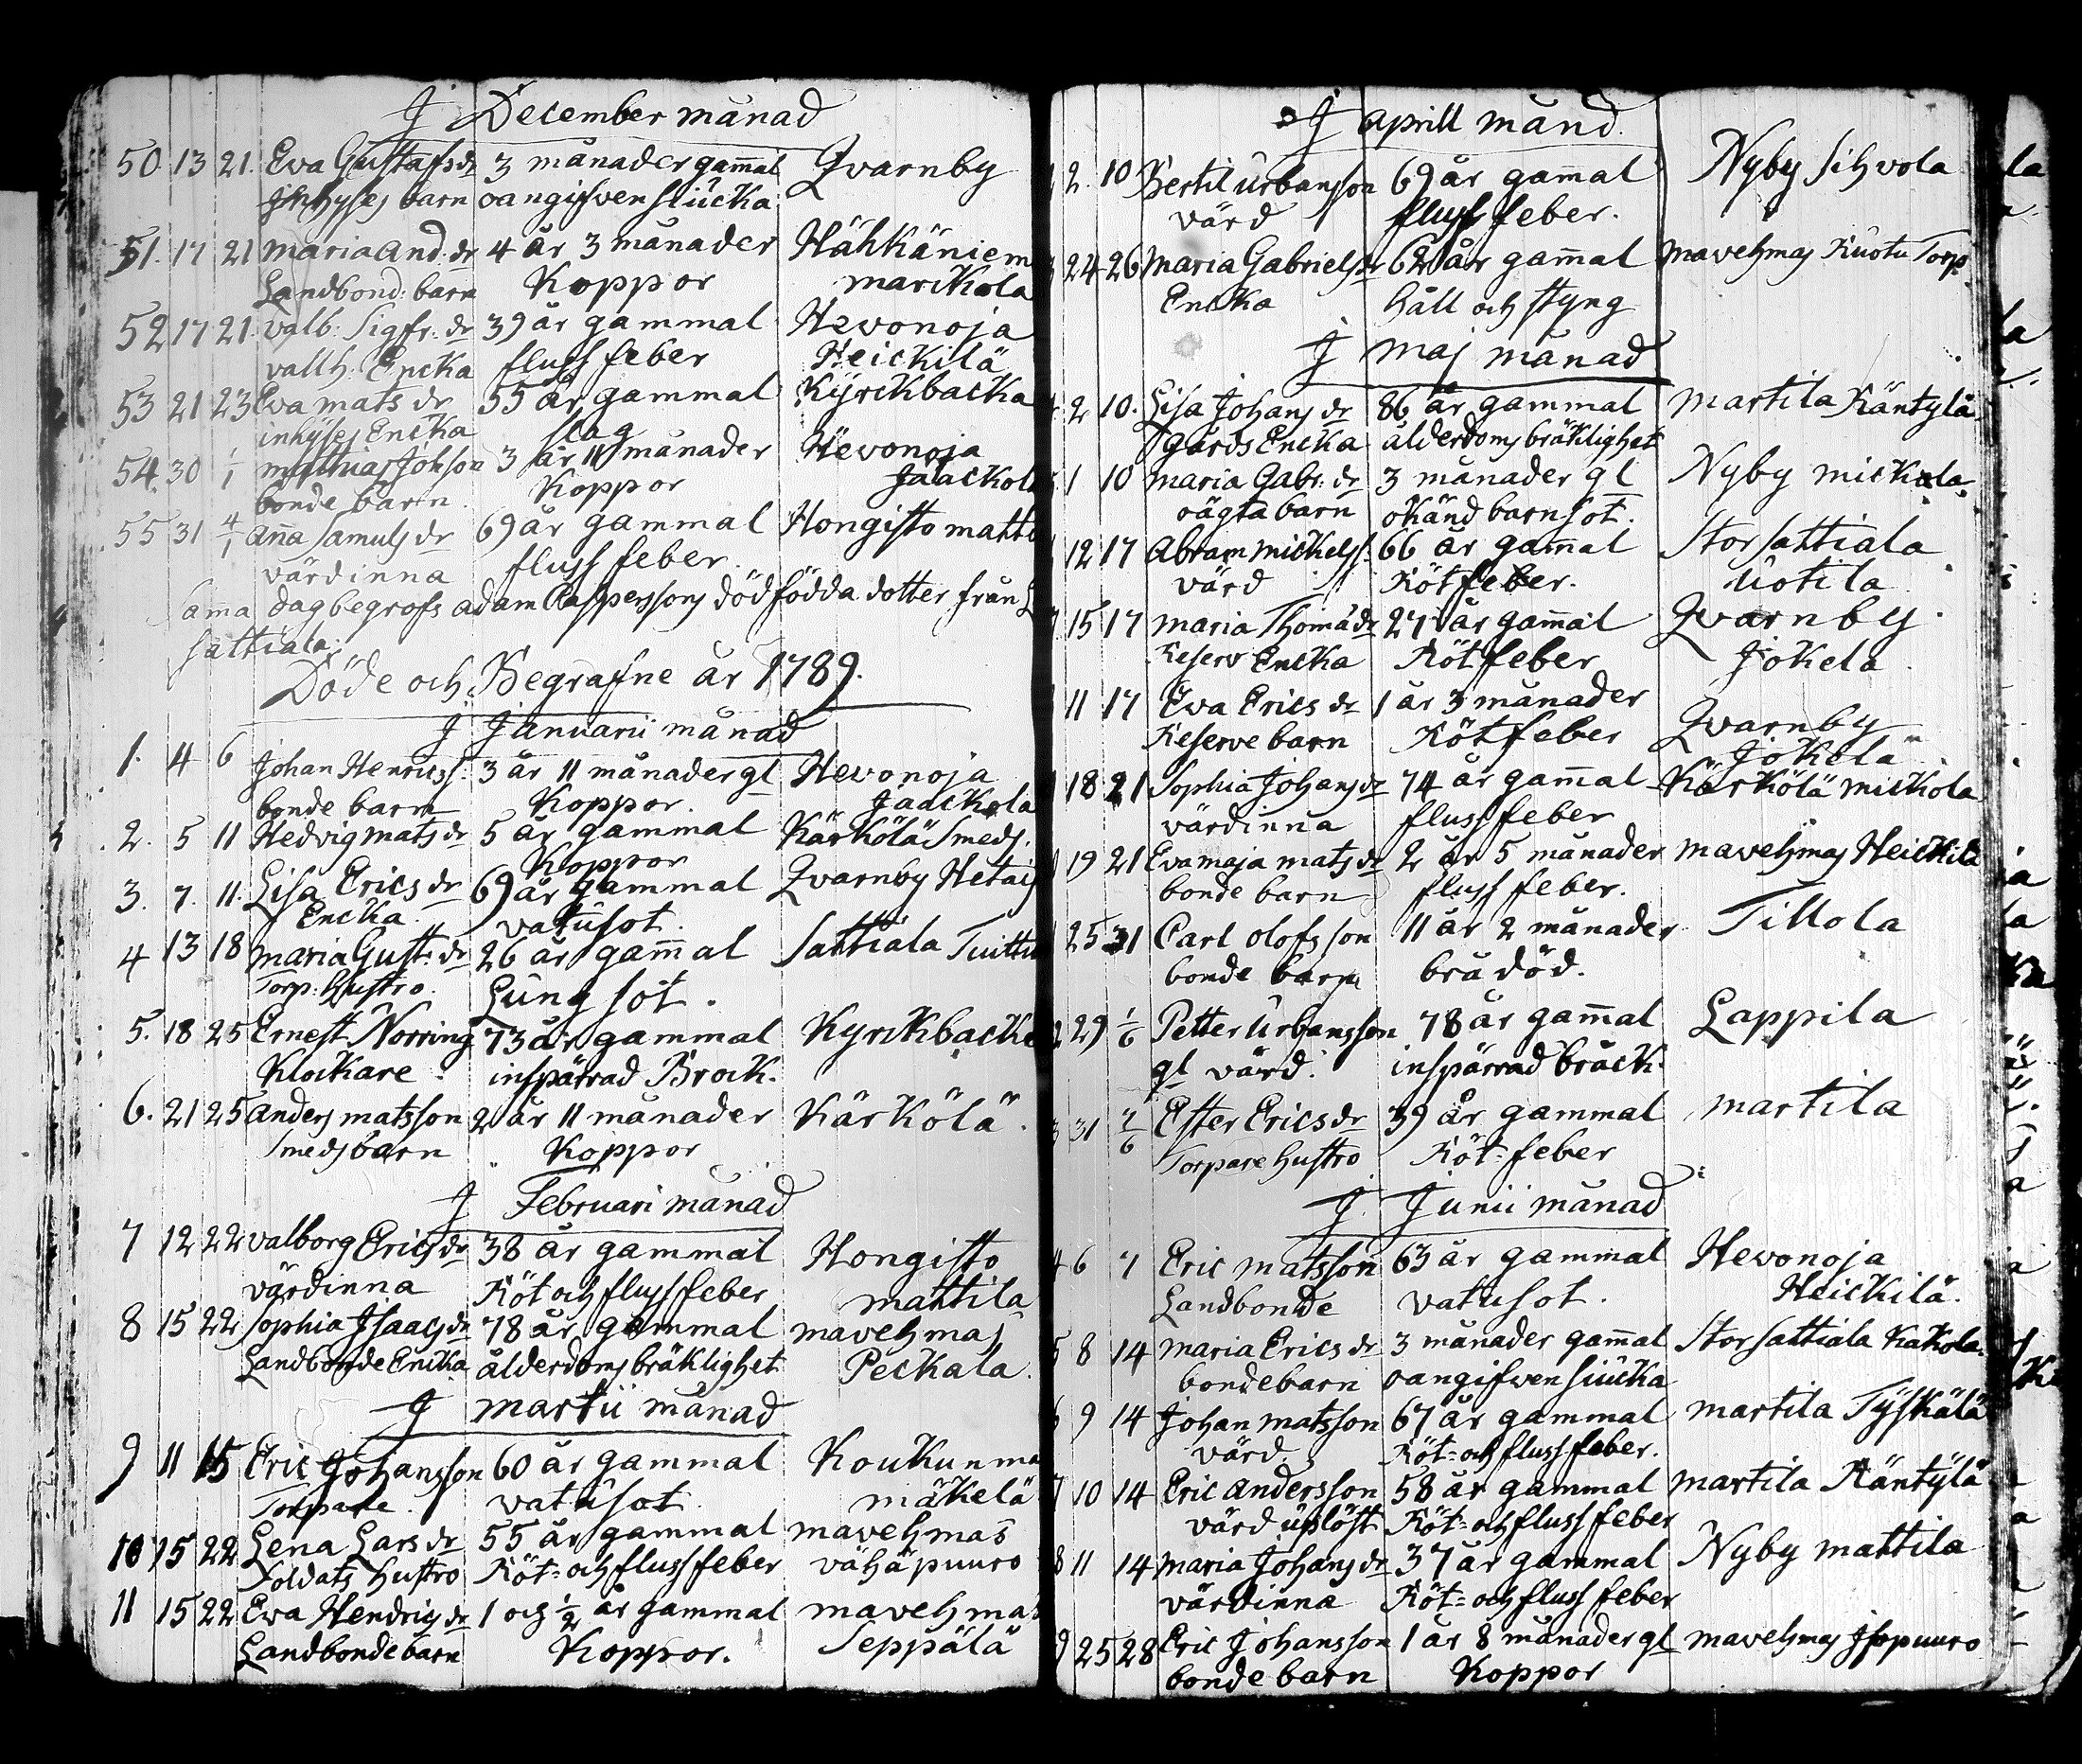 J December månad
50. 13 21. Eva Gustafs dr 3 månader gam̄al Qvarnby
Jnhyses barn oangifwen siucka
51. 17 21 maria And: dr 4 år 3 månader Hähkäniem
Landbond: barn Koppor markola
52 17 21. valb: Sigfr: dr 39 år gammal Hevonoja
vallh: Encka fluss feber Heickilä
53 21 23 Eva mats dr 55 år gammal Kyrckbacka
inhyses Encka slag
54. 30 1/1 mathias Johson 3 år 11 månader Hevonoja
bonde barn Koppor Jaackol
55 31 4/1 an̄a Samuls dr 69 år gammal Hongisto matti
värdinna fluss feber.
Sama dag begrofs adam Cappessons död födda dotter från
Sattiala:
Döde och Begrafne år 1789.
J Januarii månad
1. 4 6 Johan Henricss: 3 år 11 månader gl Hevonoja
bonde barn Koppor. Jaackola
2. 5 11 Hedvig mats dr 5 år gammal Kärkölä Smeds.
Koppor
3. 7. 11. Lisa Erics dr 69 år gammal Qvarnby Hetai
Encka. vatusot.
4 13 18 maria Gust: dr 26 år gam̄al Sattiala Tuitti
Torp: hustro. Lung sot.
5. 18 25 Ernest Norring 73 år gammal Kyrckbacke
Klockare inspärrad Brock.
6. 21 25 anders matsson 2 år 11 månader Kärkölä.
Smeds barn Koppor
J Februari månad
7 12 22 valborg Erics dr 38 år gammal Hongisto
värdinna Röt och fluss feber mattila
8 15 22 Sophia Jsaacs dr 78 år gammal mavehmas
Landbonde Encka ålderdoms bräklighet Peckala.
J martii månad
9 11 15 Eric Johansson 60 år gammal Koukunma
Torpare. vatusot. mäkelä
10 15 22 Lena Lars dr 55 år gammal mavehmas
Soldats hustro Röt= och fluss feber vähäpuuro
11 15 22 Ewa Hendrics dr 1 och 1/2 år gammal mavehmas
Landbonde barn Koppor. Seppälä
J aprill månd.
2. 10 Bertil Urbansson 69 år gam̄al Nyby Sihvola
värd fluss feber.
24 26 maria Gabriels dr 62 år gam̄al mavehmas Kuotu Torp
Encka håll och styng
J maj månad
2 10. Lisa Johans dr 86 år gammal martila Käntylä
gårds Encka ålderdoms bräklighet
1 10 maria Gabr: dr 3 månader gl Nyby mickola
oägta barn okänd barnsot.
12 17 Abram mickelss: 66 år gam̄al Stor Sattiala
värd Rötfeber. Uotila
15 17 maria Thoma dr 27 år gam̄al Qvarnby
Reserv Encka Rötfeber Jokela
11 17 Eva Erics dr 1 år 3 månader
Reserve barn Rötfeber Qvarnby
Jokela
18 21 Sophia Johans dr 74 år gam̄al Kärkölä mickola
värdinna fluss feber
19 21 Eva maja mats dr 2 år 5 månader mavehmas Heickilä
bonde barn fluss feber.
25 31 Carl olofsson 11 år 2 månader Tillola
bonde barn brå död.
29 1/6 Petter Urbansson 78 år gam̄al Lappila
gl värd. inspärrad bråck.
31 2/6 Ester Erics dr 39 år gammal martila
Torpare hustro Röt=feber
J Junii månad
4 6 7 Eric matsson 63 år gammal Hevonoja
Landbonde vatusot. Heickilä.
5 8 14 maria Erics dr 3 månader gam̄al Stor Sattiala Kakola
bondebarn oangifwen siucka
6 9 14 Johan matsson 67 år gammal martila Tyskälä
värd. Röt= och fluss feber.
7 10 14 Eric andersson 58 år gammal martila Käntylä
värd uplöst Röt= och fluss feber
8 11 14 maria Johans dr 37 år gammal Nyby mattila
värdinna Röt= och fluss feber
9 25 28 Eric Johansson 1 år 8 månader gl mavehmas Jsopuuro
bonde barn Koppor